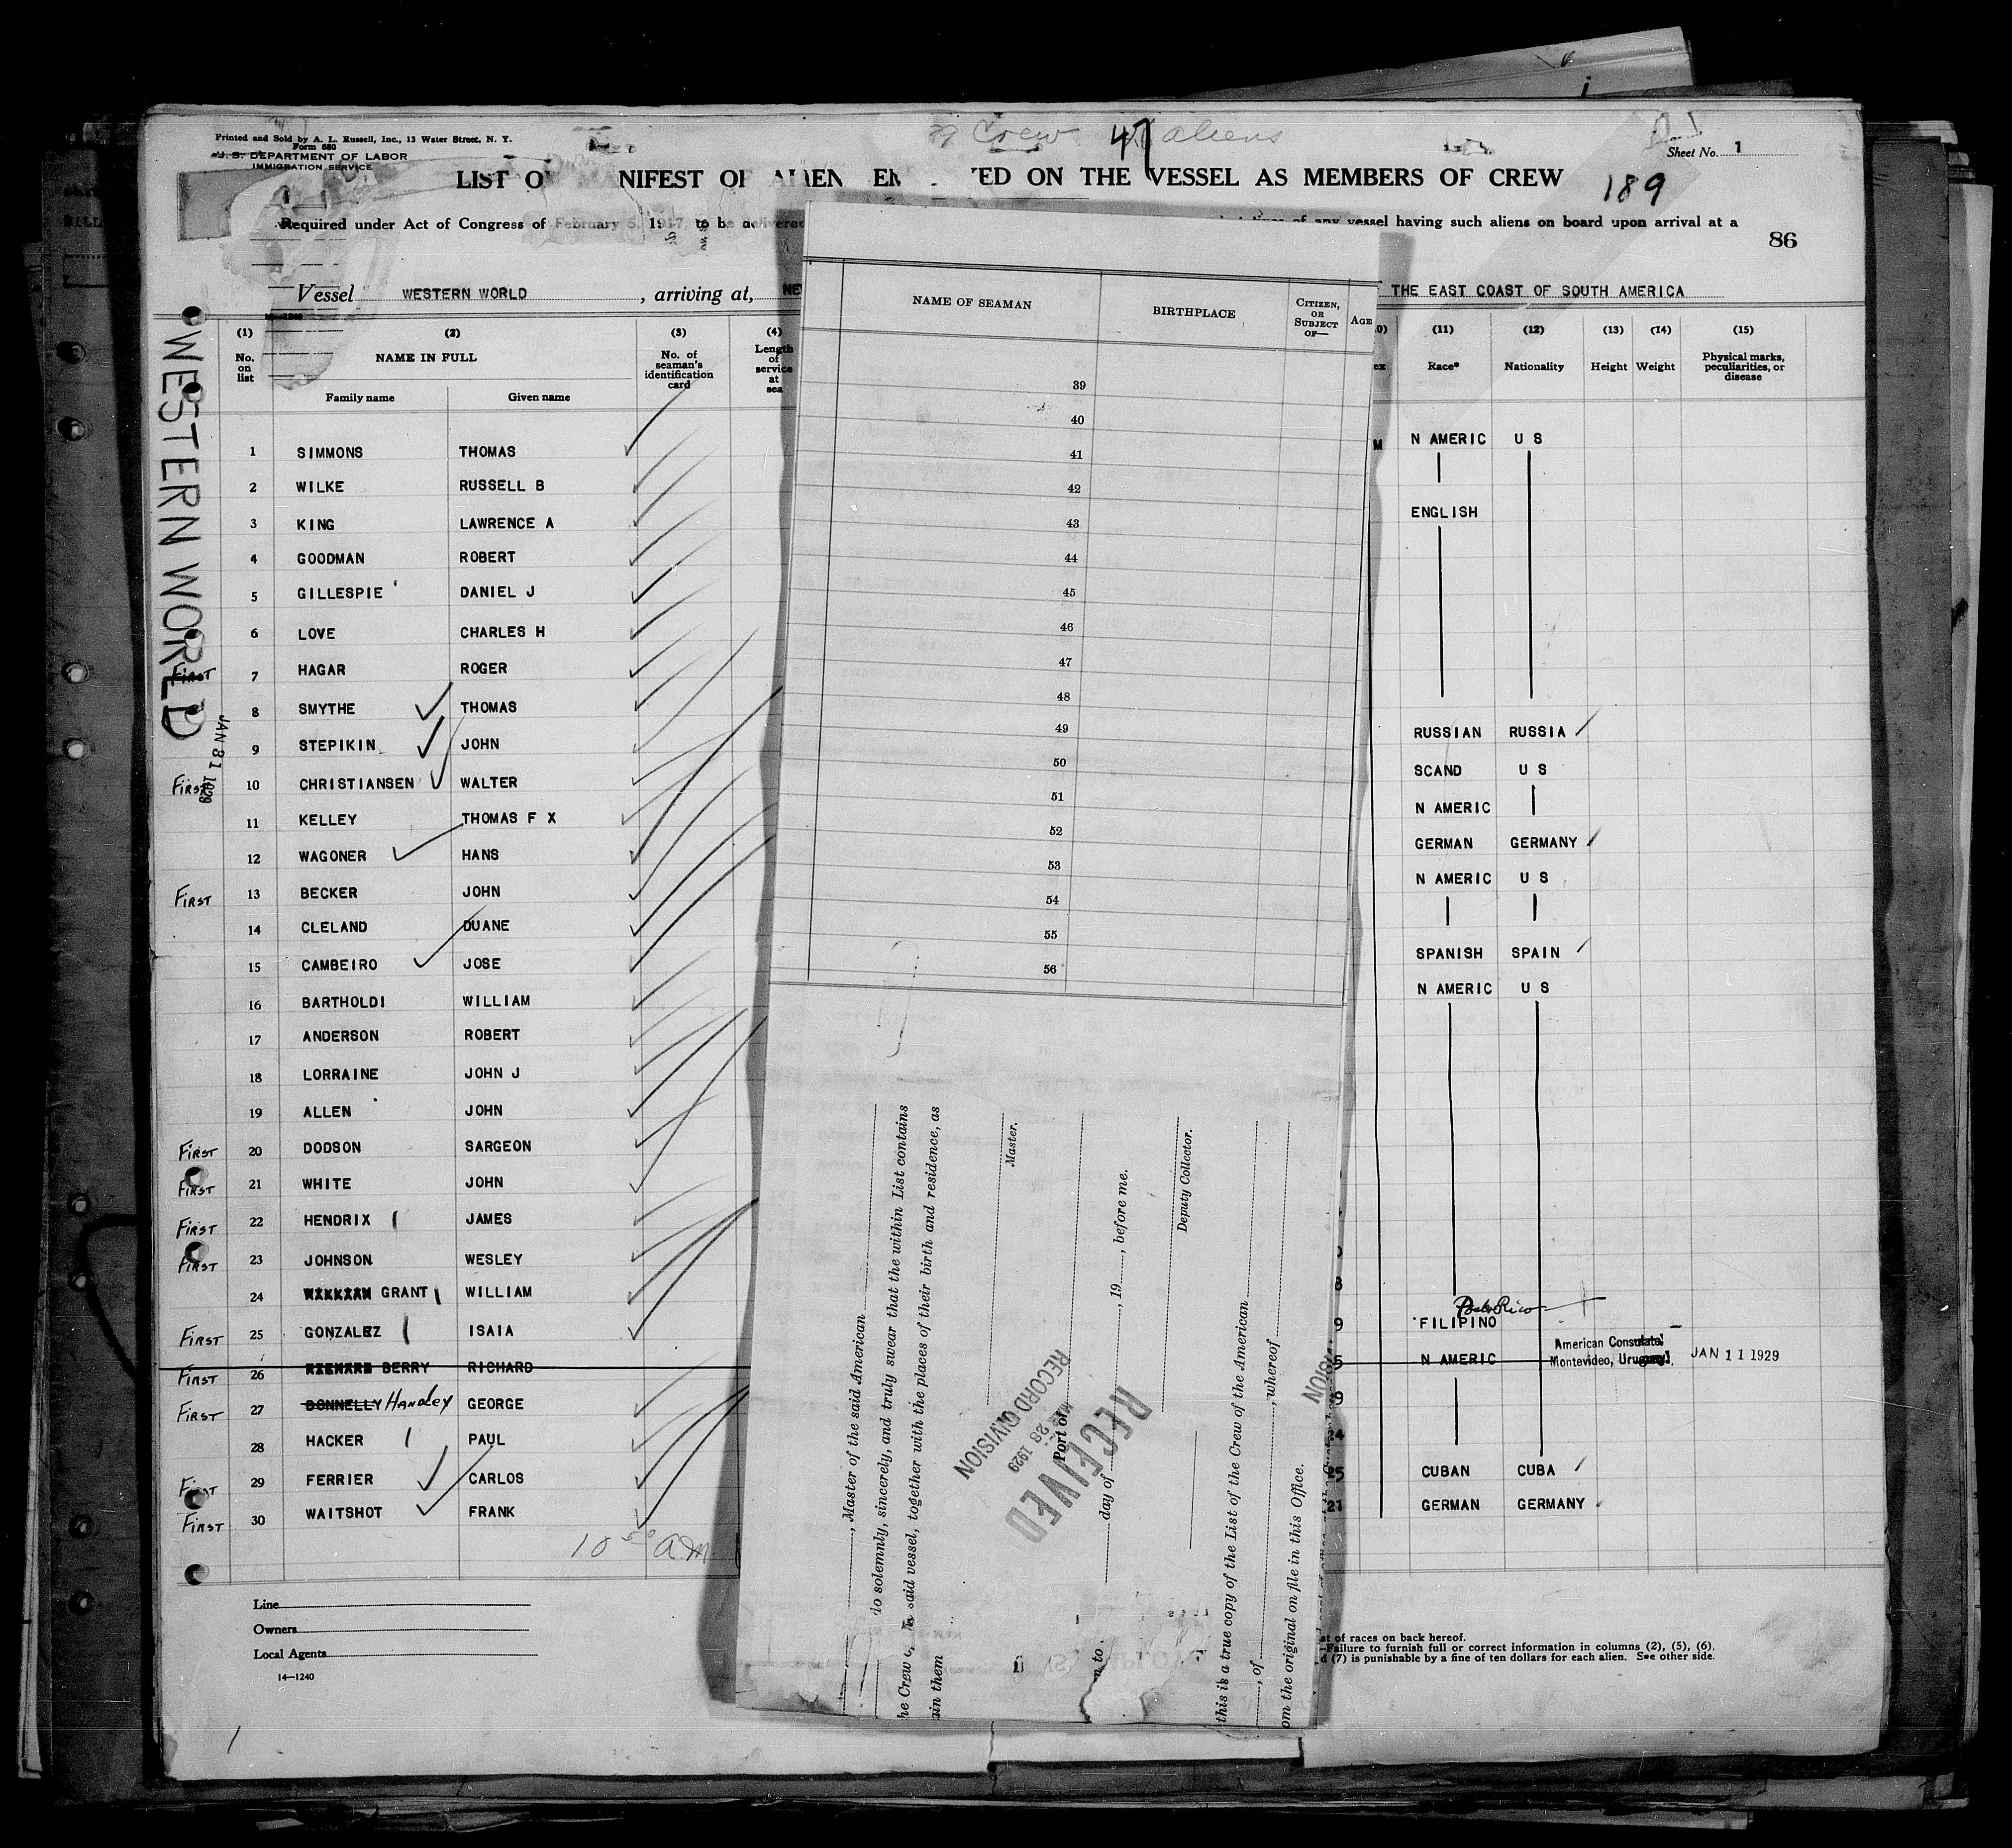 Printed and Sold by A. L. Russell, Inc., 13 Water Street, N. Y.
Form 680
U. S. DEPARTMENT OF LABOR
IMMIGRATION SERVICE
Crew 47 aliens
Sheet No. 1
LIST O NIFEST OF ALIEN ED ON THE VESSEL AS MEMBERS OF CREW
189
Required under Act of Congress of February 5, 1917, to be delivered
of any vessel having such aliens on board upon arrival at a
86
Vessel WESTERN WORLD, arriving at,
THE EAST COAST OF SOUTH AMERICA
WESTERN WORLD
JAN 31 1929
(1) (2) (3) (4) (11) (12) (13) (14) (15)
No. on list NAME IN FULL No. of seaman's identification card Length of service at sea Race* Nationality Height Weight Physical marks, peculiarities, or disease
Family name Given name
1 SIMMONS THOMAS M N AMERIC U S
2 WILKE RUSSELL B
3 KING LAWRENCE A ENGLISH
4 GOODMAN ROBERT
5 GILLESPIE DANIEL J
6 LOVE CHARLES H
First 7 HAGAR ROGER
8 SMYTHE THOMAS
9 STEPIKIN JOHN RUSSIAN RUSSIA
First 10 CHRISTIANSEN WALTER SCAND U S
11 KELLEY THOMAS F X N AMERIC
12 WAGONER HANS GERMAN GERMANY
First 13 BECKER JOHN N AMERIC U S
14 CLELAND DUANE
15 CAMBEIRO JOSE SPANISH SPAIN
16 BARTHOLDI WILLIAM N AMERIC U S
17 ANDERSON ROBERT
18 LORRAINE JOHN J
19 ALLEN JOHN
First 20 DODSON SARGEON
First 21 WHITE JOHN
First 22 HENDRIX JAMES
First 23 JOHNSON WESLEY
24 GRANT WILLIAM
Porto Rico
First 25 GONZALEZ ISAIA FILIPINO
First 26 BERRY RICHARD N AMERIC
American Consulate
Montevideo, Uruguay. JAN 11 1929
First 27 DONNELLY Handley GEORGE
28 HACKER PAUL
First 29 FERRIER CARLOS 25 CUBAN CUBA
First 30 WAITSHOT FRANK 21 GERMAN GERMANY
10 50 am
Line
Owners
Local Agents
14—1240
st of races on back hereof.
Failure to furnish full or correct information in columns (2), (5), (6),
d (7) is punishable by a fine of ten dollars for each alien. See other side.
NAME OF SEAMAN BIRTHPLACE CITIZEN, OR SUBJECT OF— AGE
39
40
41
42
43
44
45
46
47
48
49
50
51
52
53
54
55
56
, Master of the said American
do solemnly, sincerely, and truly swear that the within List contains
he Crew said vessel, together with the places of their birth and residence, as
ain them
Master.
n to
day of , 19 , before me.
Deputy Collector.
Port of
RECEIVED
28 1929
RECORD DIVISION
this is a true copy of the List of the Crew of the American
, of , whereof
om the original on file in this Office.